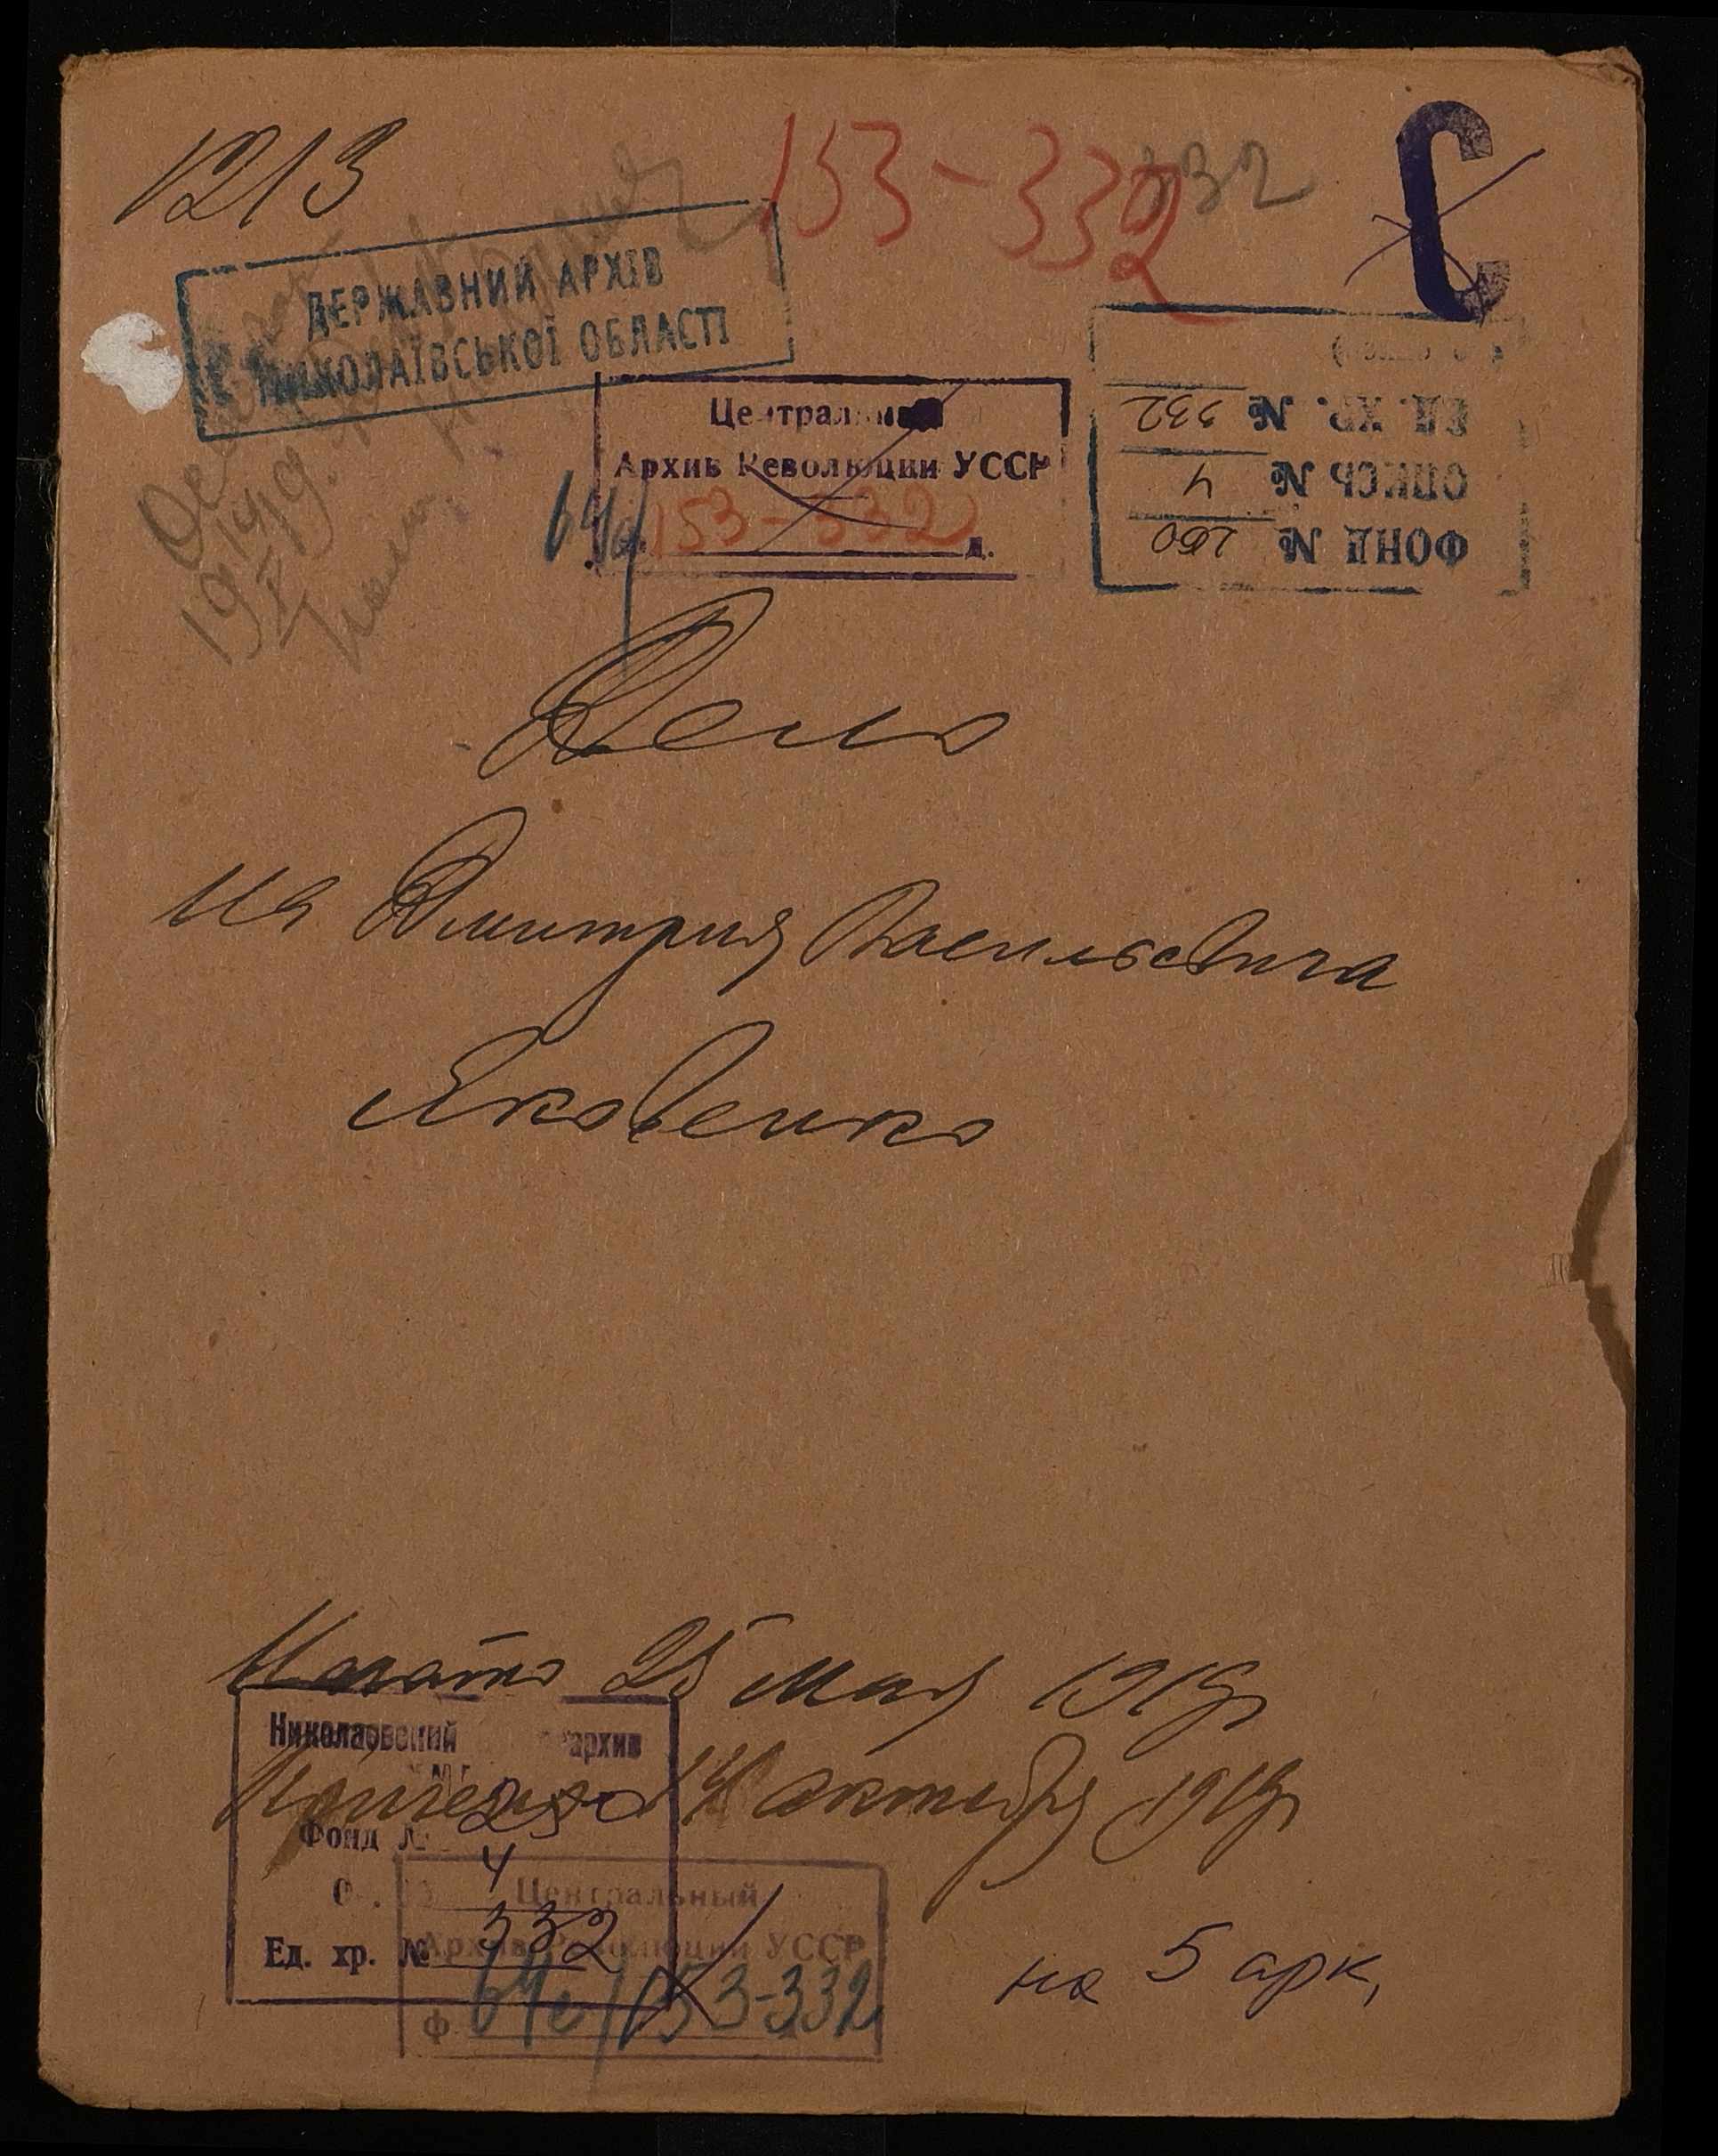 1213
153-332
332
С
ДЕРЖАВНИЙ АРХІВ
МИКОЛАЇВСЬКОЇ ОБЛАСТІ
Центральный
Архив Революции УССР
153-332 д.
ФОНД № 260
ОПИСЬ № 4
ЕД. ХР. № 332
Дело
На Дмитрия Васильевича
Яковенко
Начато 25 мая 1919г
Кончено 14 октября 1919г
Николаевский архив
Фонд № 250
4
Ед. хр. № 332
Центральный
Архив Революции УССР
Ф 64с/153-332
на 5 арк.